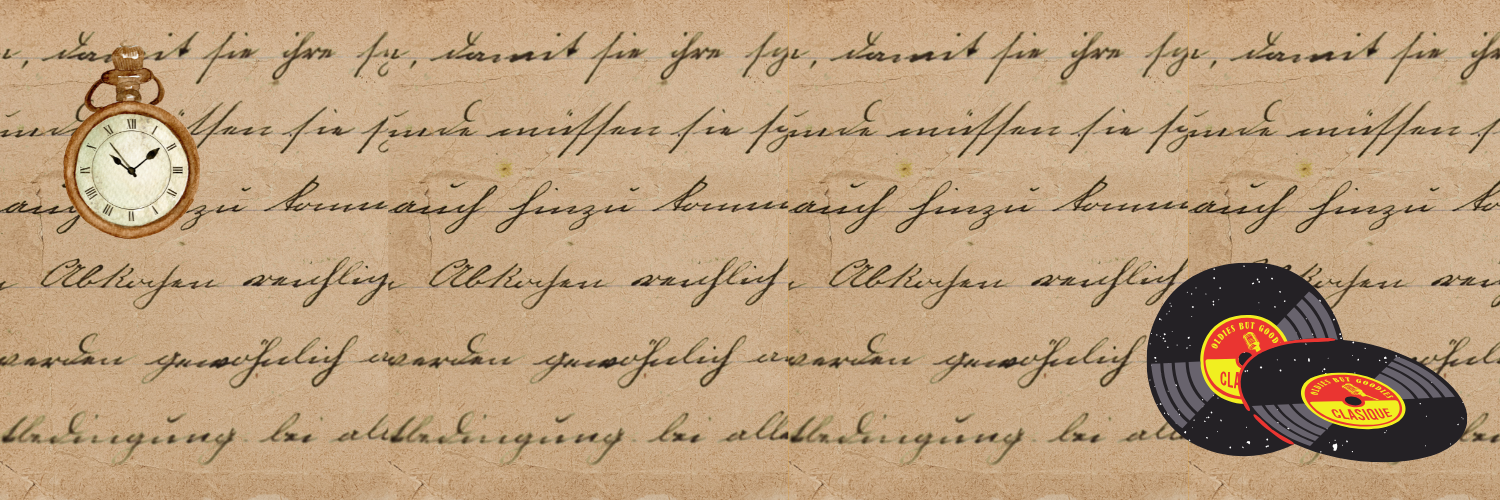 damit sie ihre damit sie ihre damit sie ihre damit sie
müssen sie müssen sie müssen
hinzu komm auch hinzu komm auch hinzu komm auch hinzu
Abkochen reichlich Abkochen reichlich Abkochen reichlich
werden gewöhnlich werden gewöhnlich werden gewöhnlich
bedingung bei bedingung bei alle bedingung bei
XII
OLDIES BUT GOOD
CLA
OLDIES BUT GOODIES
CLASIQUE